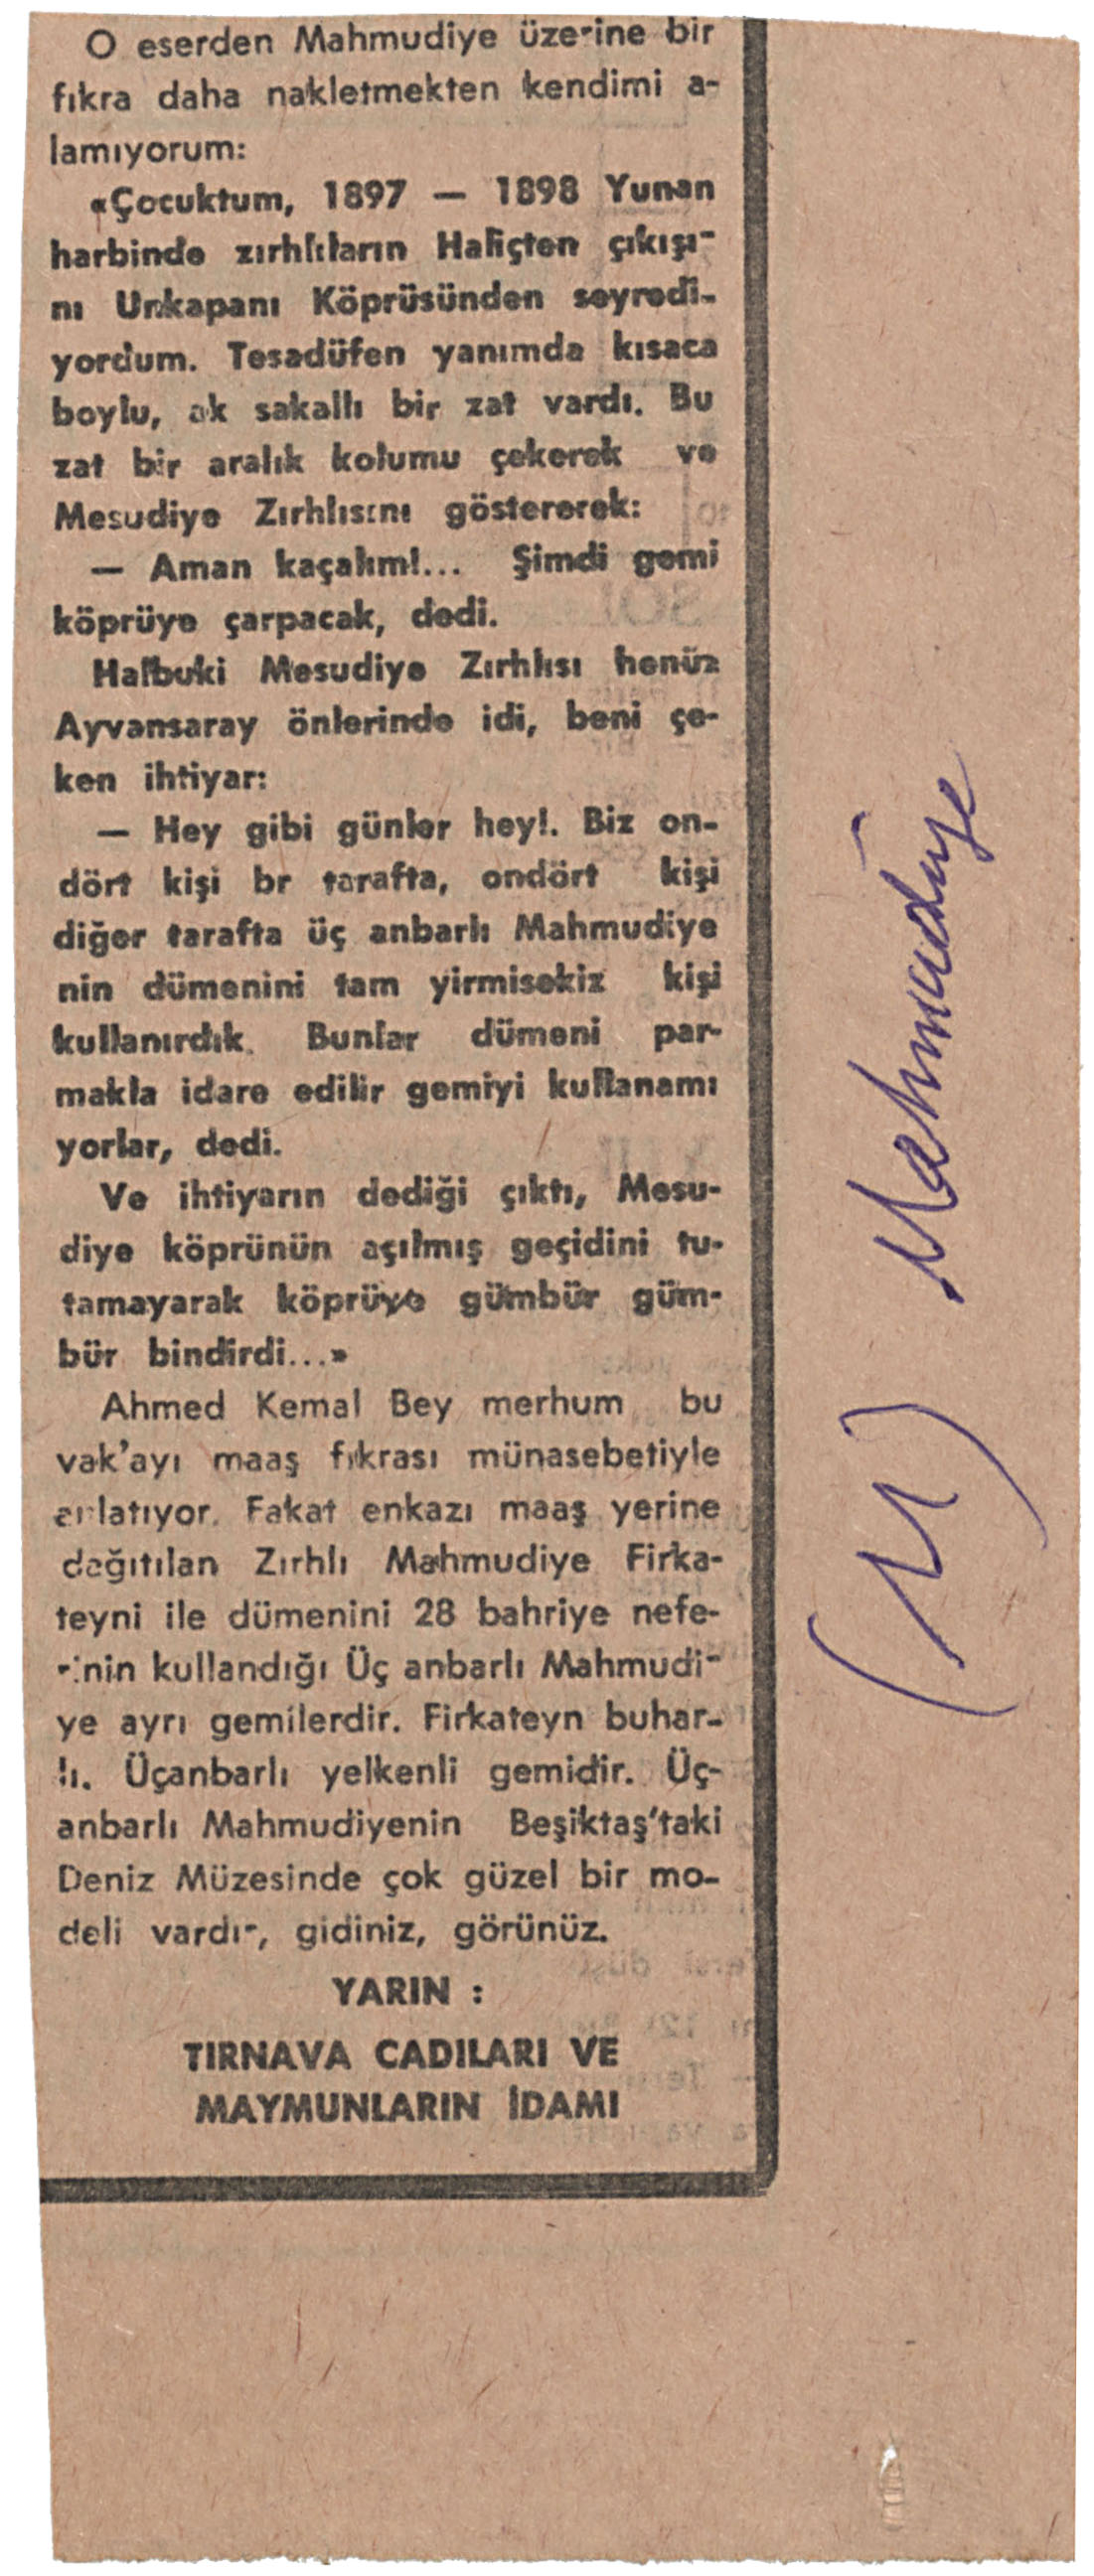 O eserden Mahmudiye üzerine bir
fıkra daha nakletmekten kendimi a-
lamıyorum:
«Çocuktum, 1897 — 1898 Yunan
harbinde zırhlıların Haliçten çıkışı-
nı Unkapanı Köprüsünden seyredi-
yordum. Tesadüfen yanımda kısaca
boylu, ak sakallı bir zat vardı. Bu
zat bir aralık kolumu çekerek ve
Mesudiye Zırhlısını göstererek:
— Aman kaçalım!... Şimdi gemi
köprüye çarpacak, dedi.
Halbuki Mesudiye Zırhlısı henüz
Ayvansaray önlerinde idi, beni çe-
ken ihtiyar:
— Hey gibi günler hey!. Biz on-
dört kişi br tarafta, ondört kişi
diğer tarafta üç anbarlı Mahmudiye
nin dümenini tam yirmisekiz kişi
kullanırdık. Bunlar dümeni par-
makla idare edilir gemiyi kullanamı
yorlar, dedi.
Ve ihtiyarın dediği çıktı, Mesu-
diye köprünün açılmış geçidini tu-
tamayarak köprüye gümbür güm-
bür bindirdi...»
Ahmed Kemal Bey merhum bu
vak'ayı maaş fıkrası münasebetiyle
anlatıyor. Fakat enkazı maaş yerine
dağıtılan Zırhlı Mahmudiye Firka-
teyni ile dümenini 28 bahriye nefe-
rinin kullandığı Üç anbarlı Mahmudi-
ye ayrı gemilerdir. Firkateyn buhar-
lı. Üçanbarlı yelkenli gemidir. Üç-
anbarlı Mahmudiyenin Beşiktaş'taki
Deniz Müzesinde çok güzel bir mo-
deli vardır, gidiniz, görünüz.
YARIN :
TIRNAVA CADILARI VE
MAYMUNLARIN İDAMI
(M) Mahmudiye